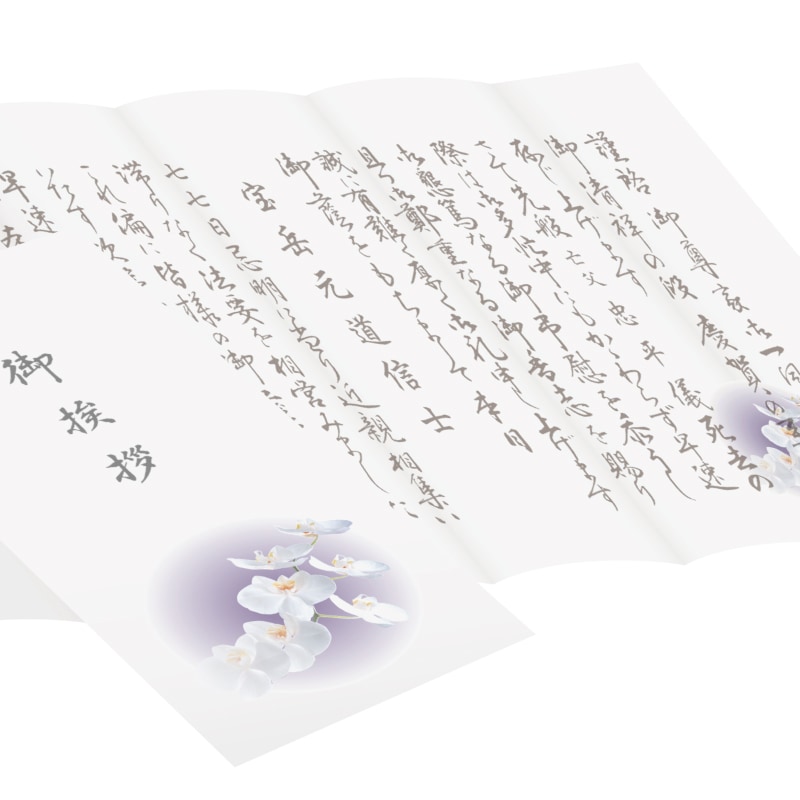 謹啓 御尊家御一同
御清祥の段 慶賀の至
存じ上げます
さて先般 亡父 忠平 儀 死去の
際は御多忙中にもかかわらず早速
御懇篤なる御弔慰を忝うし
且つ御鄭重なる御香志を賜り
誠に有難く厚く御礼申し上げます
御蔭をもちまして 本日
宝岳元道信士
七七日忌明に当り近親相集い
滞りなく法要を相営みました
これ偏に皆様の御
いたす次
早速
御挨拶